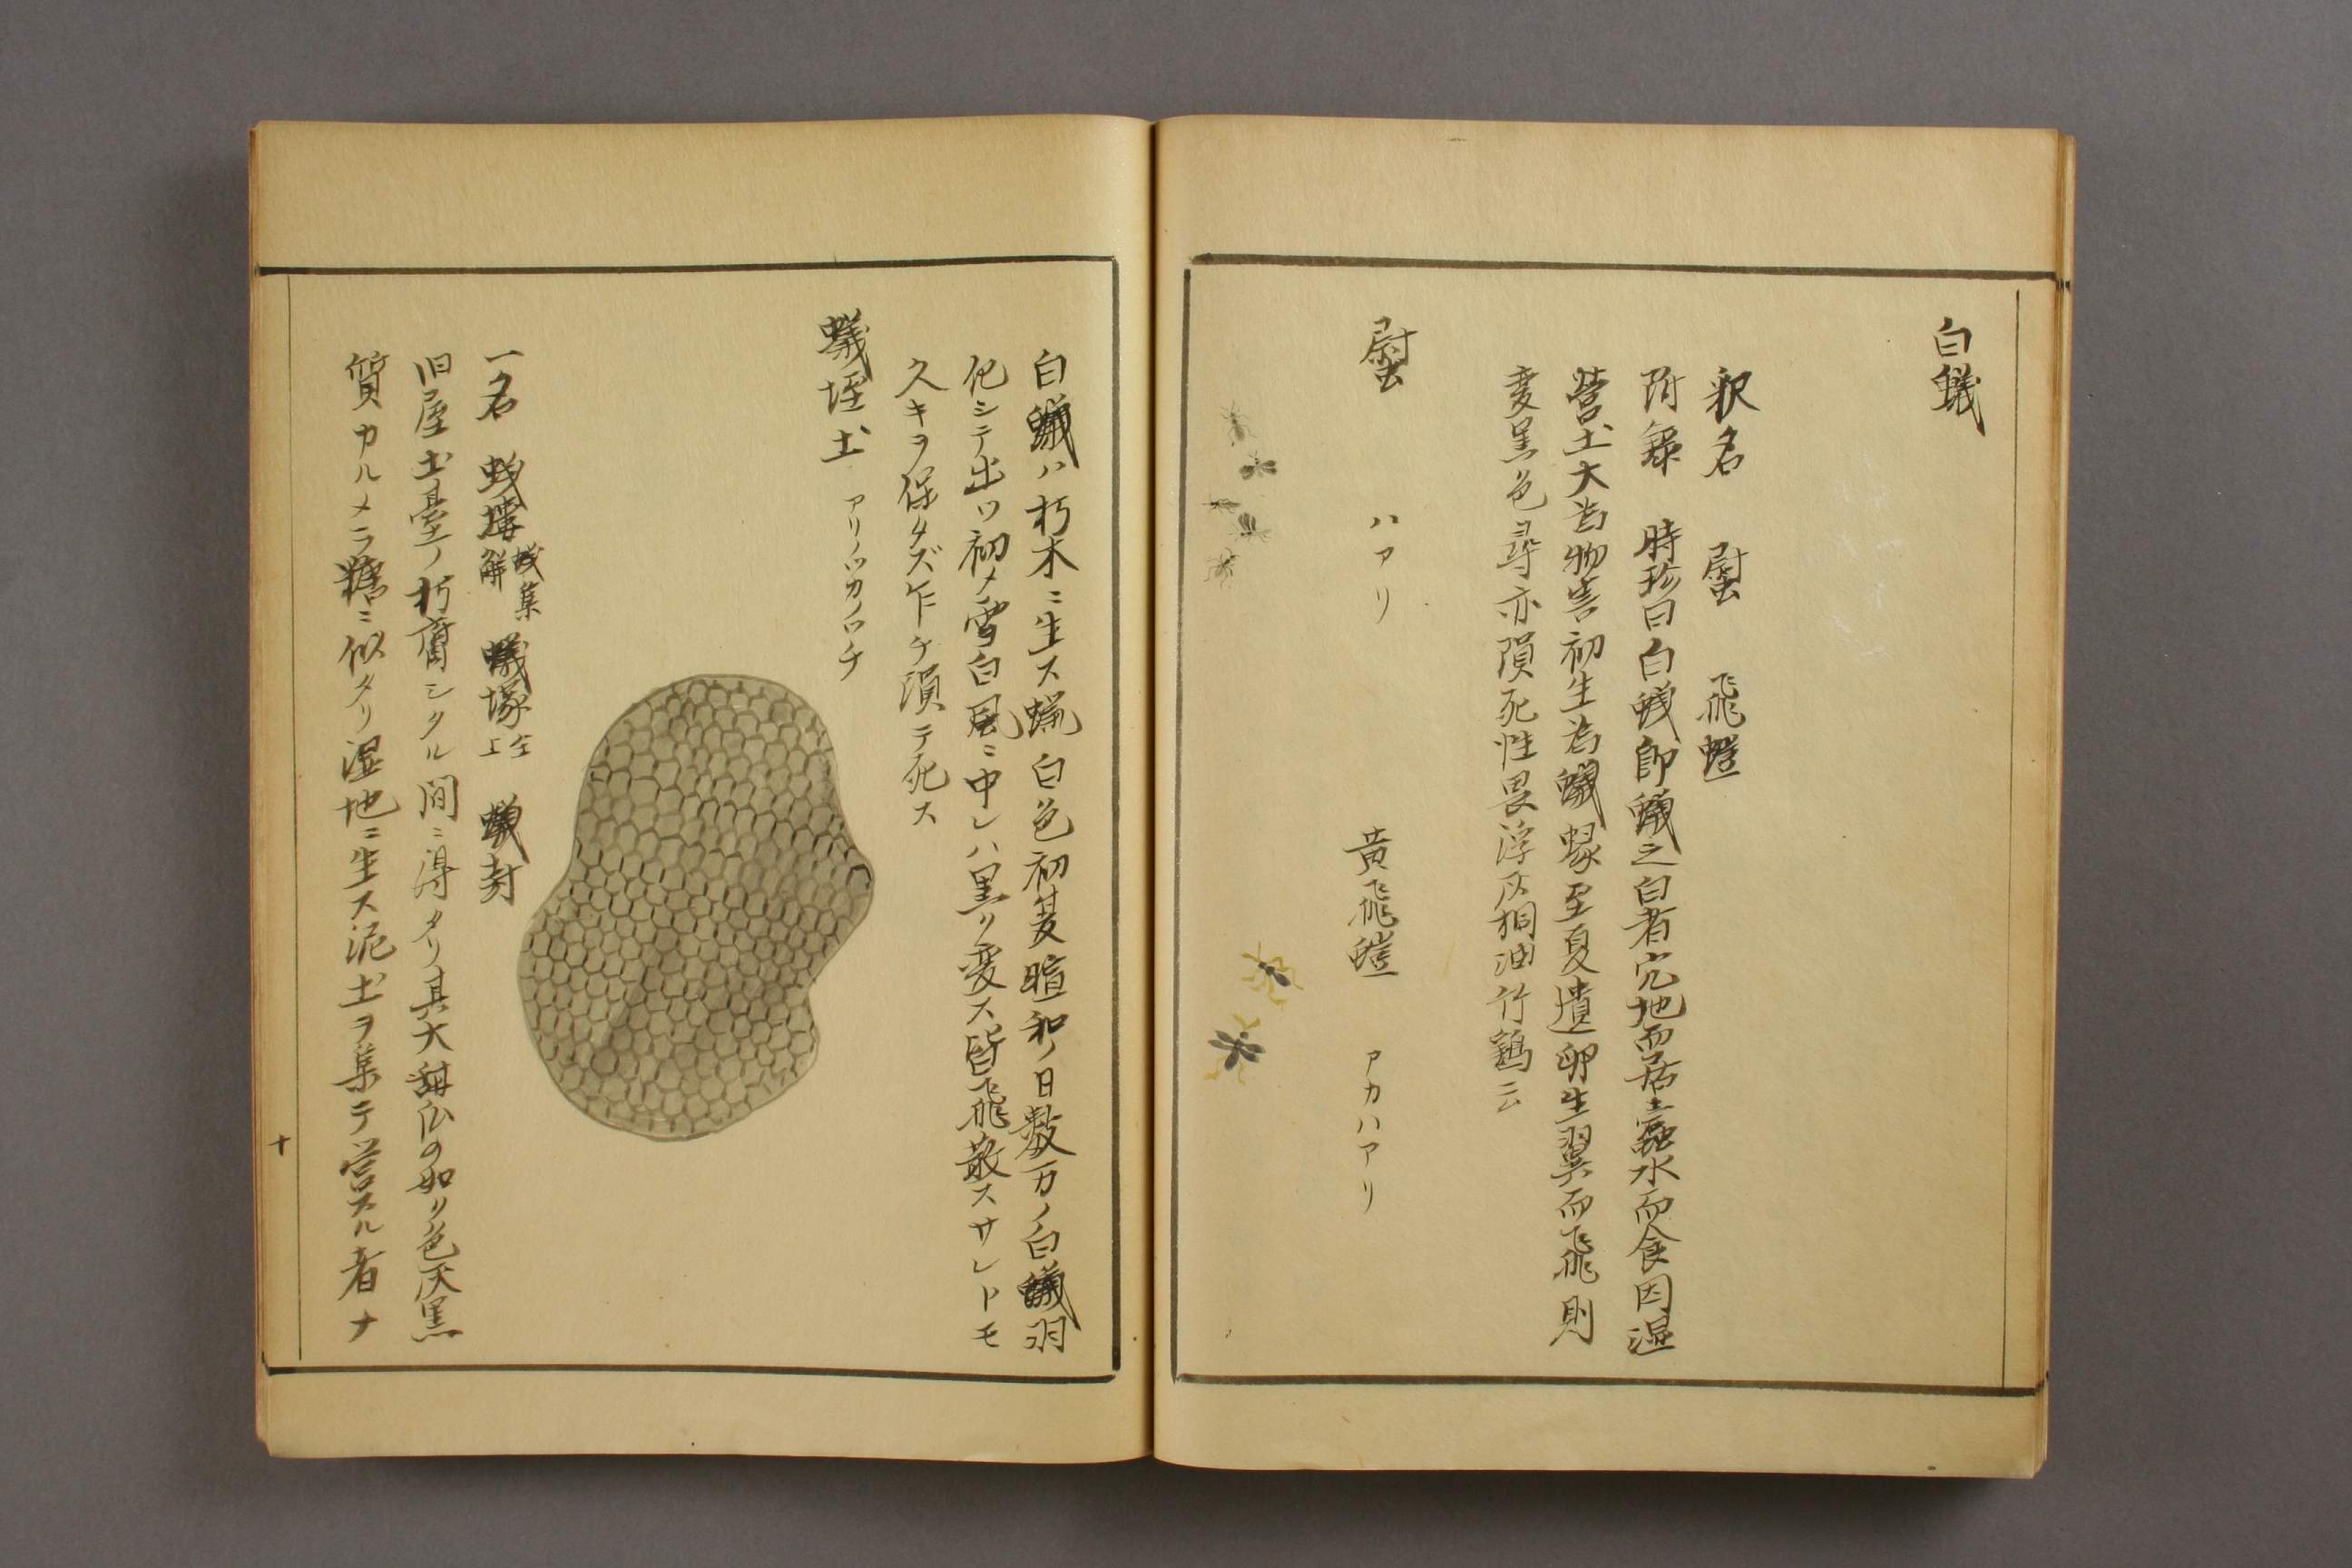 白蟻
釈名 螱 飛螘
附録 時珍曰白蟻即蟻之白者穴地而居蠧水而食因湿
営土大為物害初生為蟻蝝至夏遺卵生翼而飛則
変黒色尋亦隕死性畏浮灰桐油竹鶏云
螱 ハアリ 黄飛螘 アカハアリ
白蟻ハ朽木ニ生ス蝋白色初夏暄和ノ日数万ノ白蟻羽
化シテ出ツ初メ雪白風ニ中レハ黒ク変ス皆飛散スサレトモ
久キヲ保タズ乍チ隕テ死ス
蟻垤土 アリノツカノツチ
一名 蟻塿 蟻集解 蟻塚 仝上 蟻封
旧屋土臺ノ朽腐シタル間ニ得タリ其大甜瓜の如ク色灰黒
質カルメニラ糖ニ似タリ湿地ニ生ス泥土ヲ集テ営スル者ナ
十